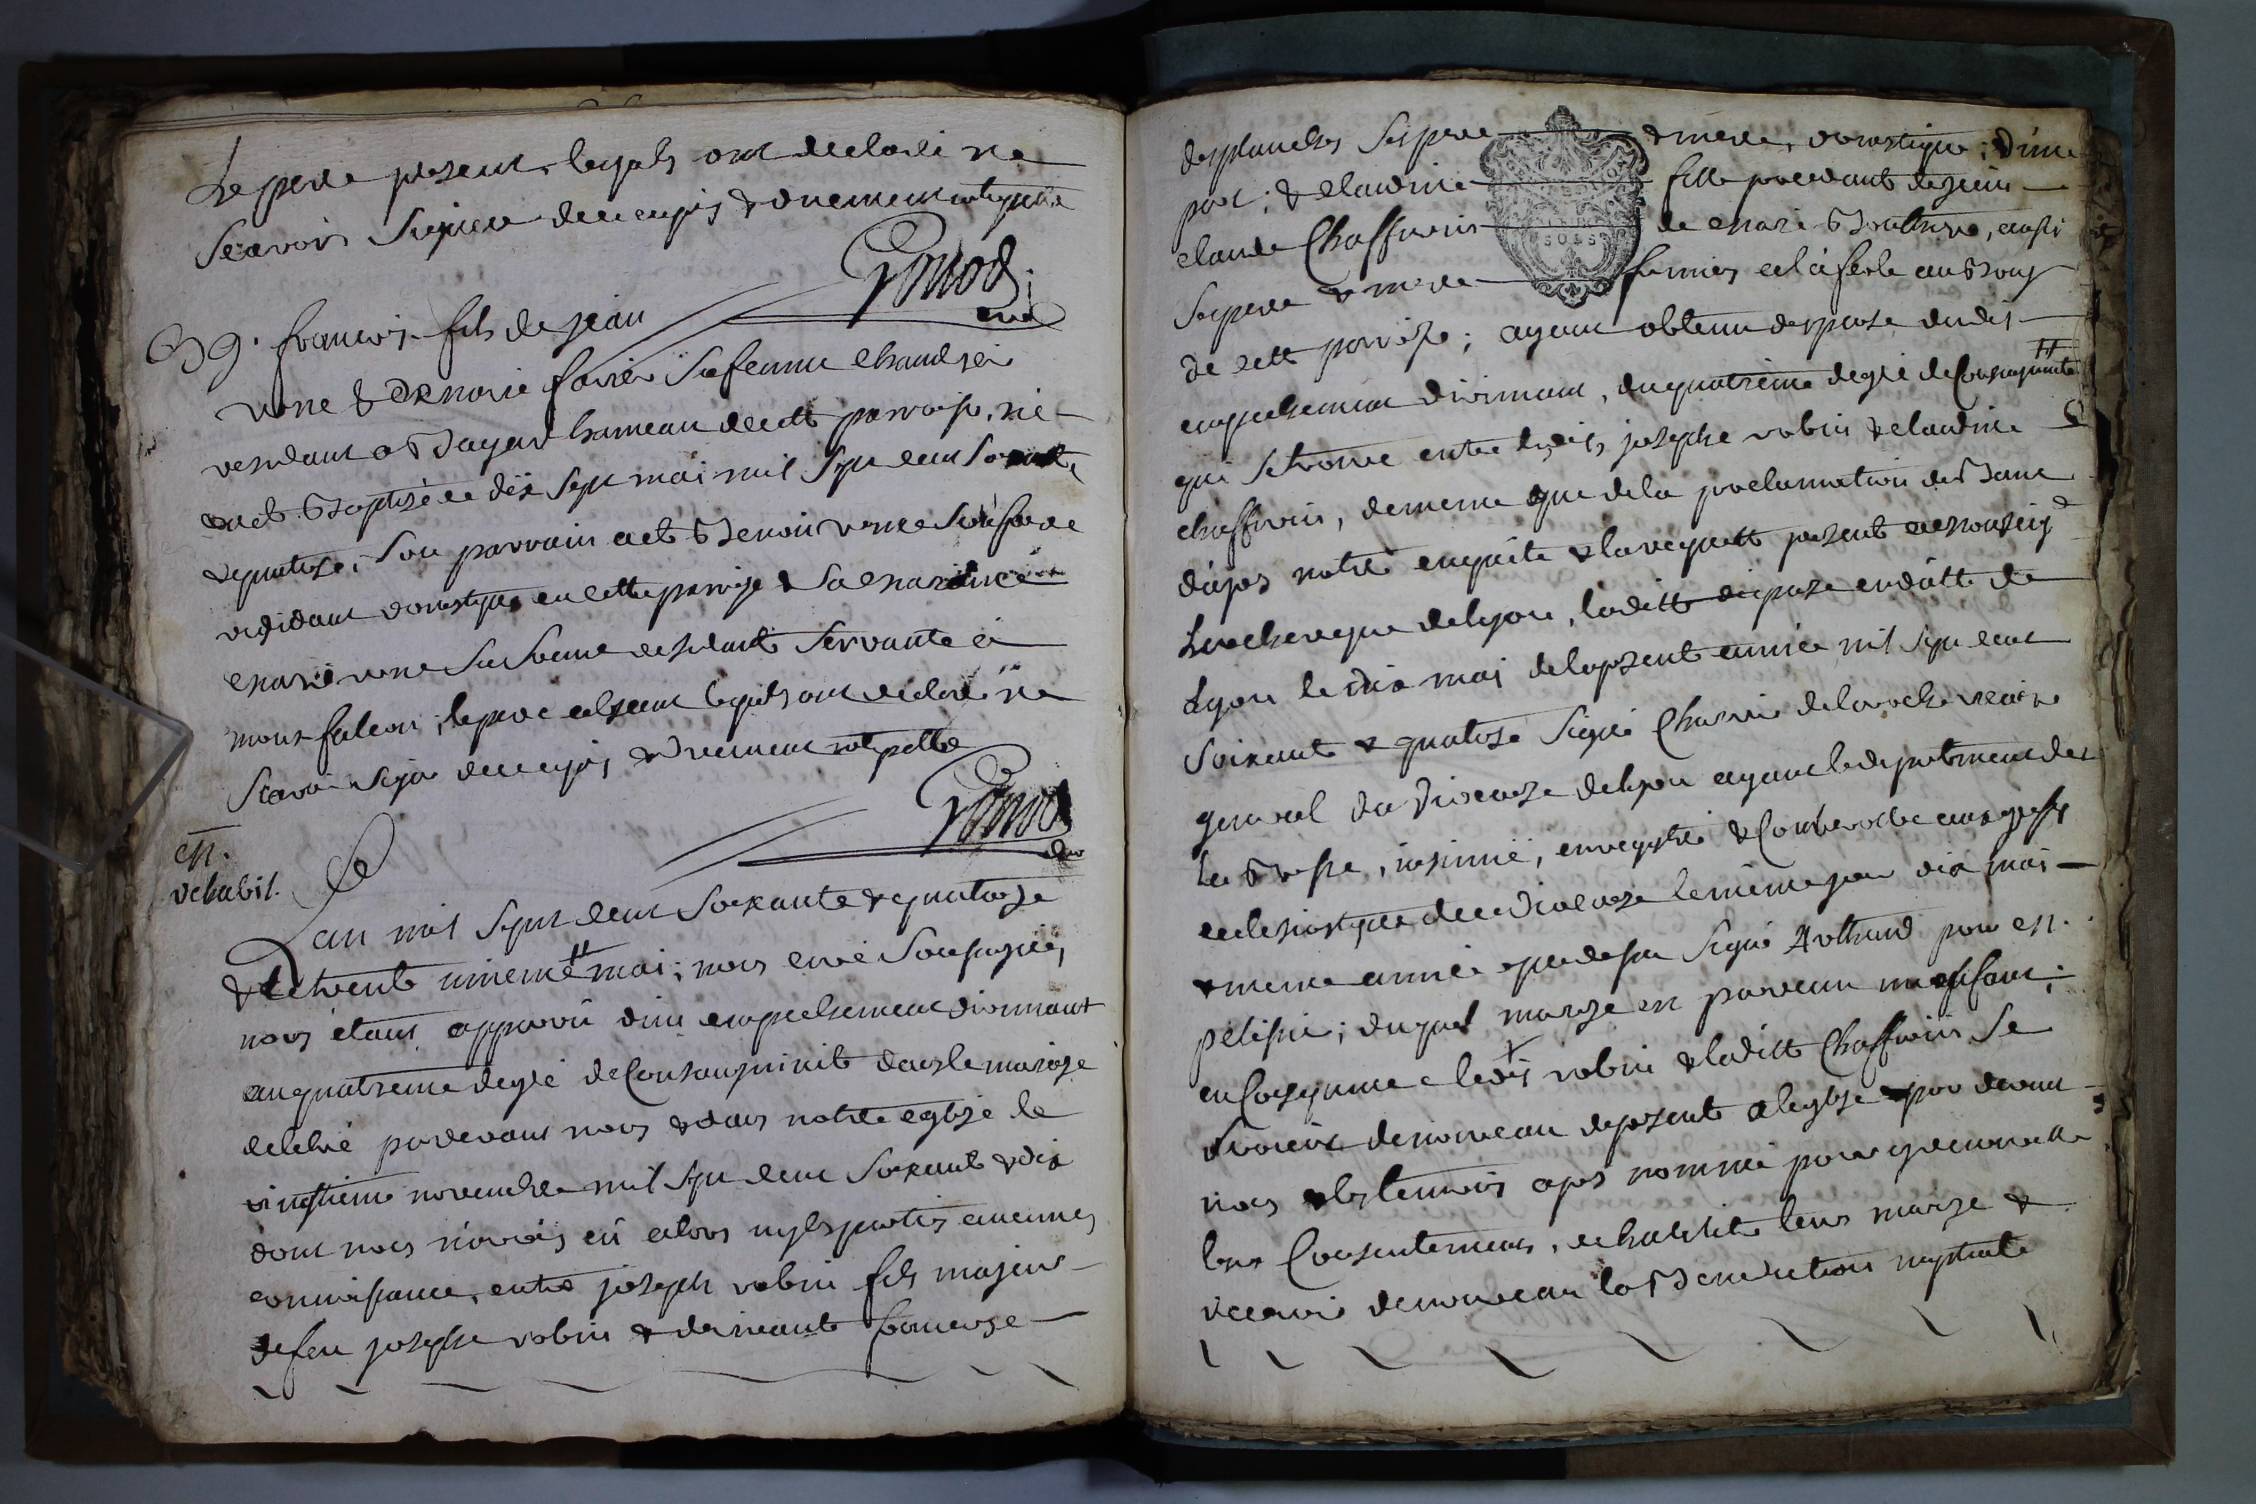 Le pere present, lequels ont declaré ne
scavoir signer de ce enquis & duement interpellé
Ponod.
curé
B 9. francois fils de jean
vone & de marie favier sa femme
residant a Bayard hameau de cette parroisse, né
et est Baptisé le dix sept mai mil sept cent soixante
& quatorze; son parrain a eté Benoit vone son frere
residant domestique en cette paroisse & sa maraine
marie vone sa soeur residante servante à
montfalcon, le pere absent lequels ont declaré ne
scavoir signer de ce enquis & duement interpellé
Ponod
curé
m.
rehabil.
L'an mil sept cent soixante & quatorze
& le trente unieme mai; nous curé soussigné,
nous étant apparu d'un empechement dirimant
au quatrieme degré de Consanguinité dans le mariage
celebré pardevant nous & dans notre eglise le
vingtieme novembre mil sept cent soixante & dix
dont nous n'avions eû alors ny les parties aucunes
connoissance, entre joseph robin fils majeur
de feu joseph robin & de vivante francoise
desplanches ses pere & mere, domestique; d'une
part; & claudine fille procedante de jean
claude Chaffroin de marie Bouthiere, aussi
ses pere & mere fermiers
de cette parroisse; ayant obtenu dispense dudit
empechement dirimant, du quatrieme degré de Consanguinité
qui se trouve entre lesdits joseph robin & claudine
chaffroin, de meme que de la proclamation des Bans
d'apres notre enquete & la requette presentée a monseigr
L'archeveque de lyon, laditte dispense en datte de
Lyon le dix mai de la presente année mil sept cent
soixante & quatorze signé Charrier de la roche vicaire
general du Diocese de lyon ayant le departement de
la Bresse, insinué, enregistré & Controlé aux greffes
ecclesiastiques de ce Diocese le même jour dix mai
& meme année que dessus signé Arthaud pour m.
pelissie; duquel mariage en provenu un enfant;
en Consequence ledit robin & laditte Chaffroin se
seroient de nouveau presenté a l'eglise & par devant
nous & les temoins apres nommés pour y renouveller
leur Consentement, rehabiliter leur mariage &
recevoir de nouveau la Benediction nuptiale